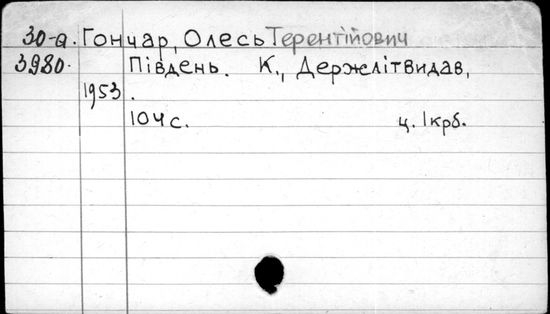 30-а. Гончар, Олесь Терентійович
3980. Південь. К., Держлітвидав,
1953.
104 с. ц. 1 крб.